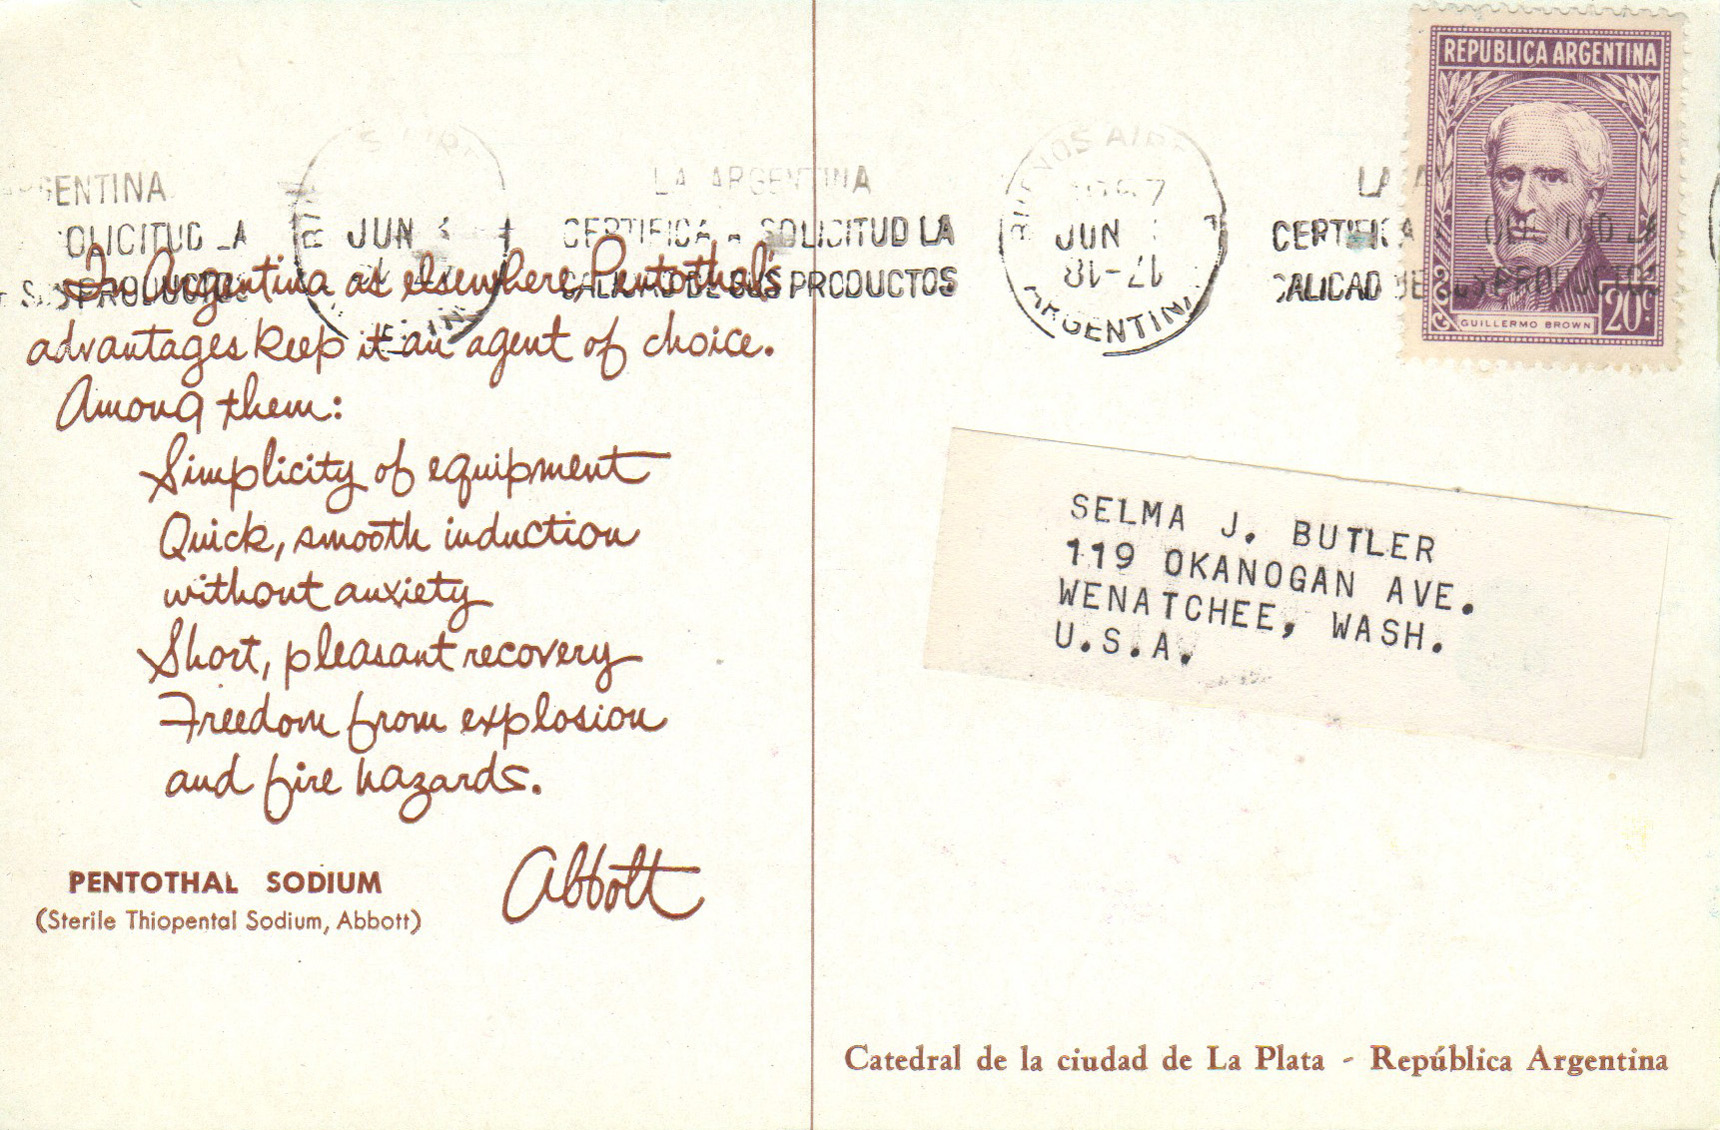 REPUBLICA ARGENTINA
GUILLERMO BROWN
20c
ARGENTINA
OLICITUD LA
SUS PRODUCTOS
JUN
LA ARGENTINA
CERTIFICA - SOLICITUD LA
CALIDAD DE SUS PRODUCTOS
BUENOS AIRES
JUN
ARGENTINA
LA A
CERTIFICA
CALIDAD DE SUS PRODUCTOS
In Argentina as elsewhere Pentothal's
advantages keep it an agent of choice.
Among them:
Simplicity of equipment
Quick, smooth induction
without anxiety
Short, pleasant recovery
Freedom from explosion
and fire hazards.
Abbott
PENTOTHAL SODIUM
(Sterile Thiopental Sodium, Abbott)
SELMA J. BUTLER
119 OKANOGAN AVE.
WENATCHEE, WASH.
U.S.A.
Catedral de la ciudad de La Plata - República Argentina